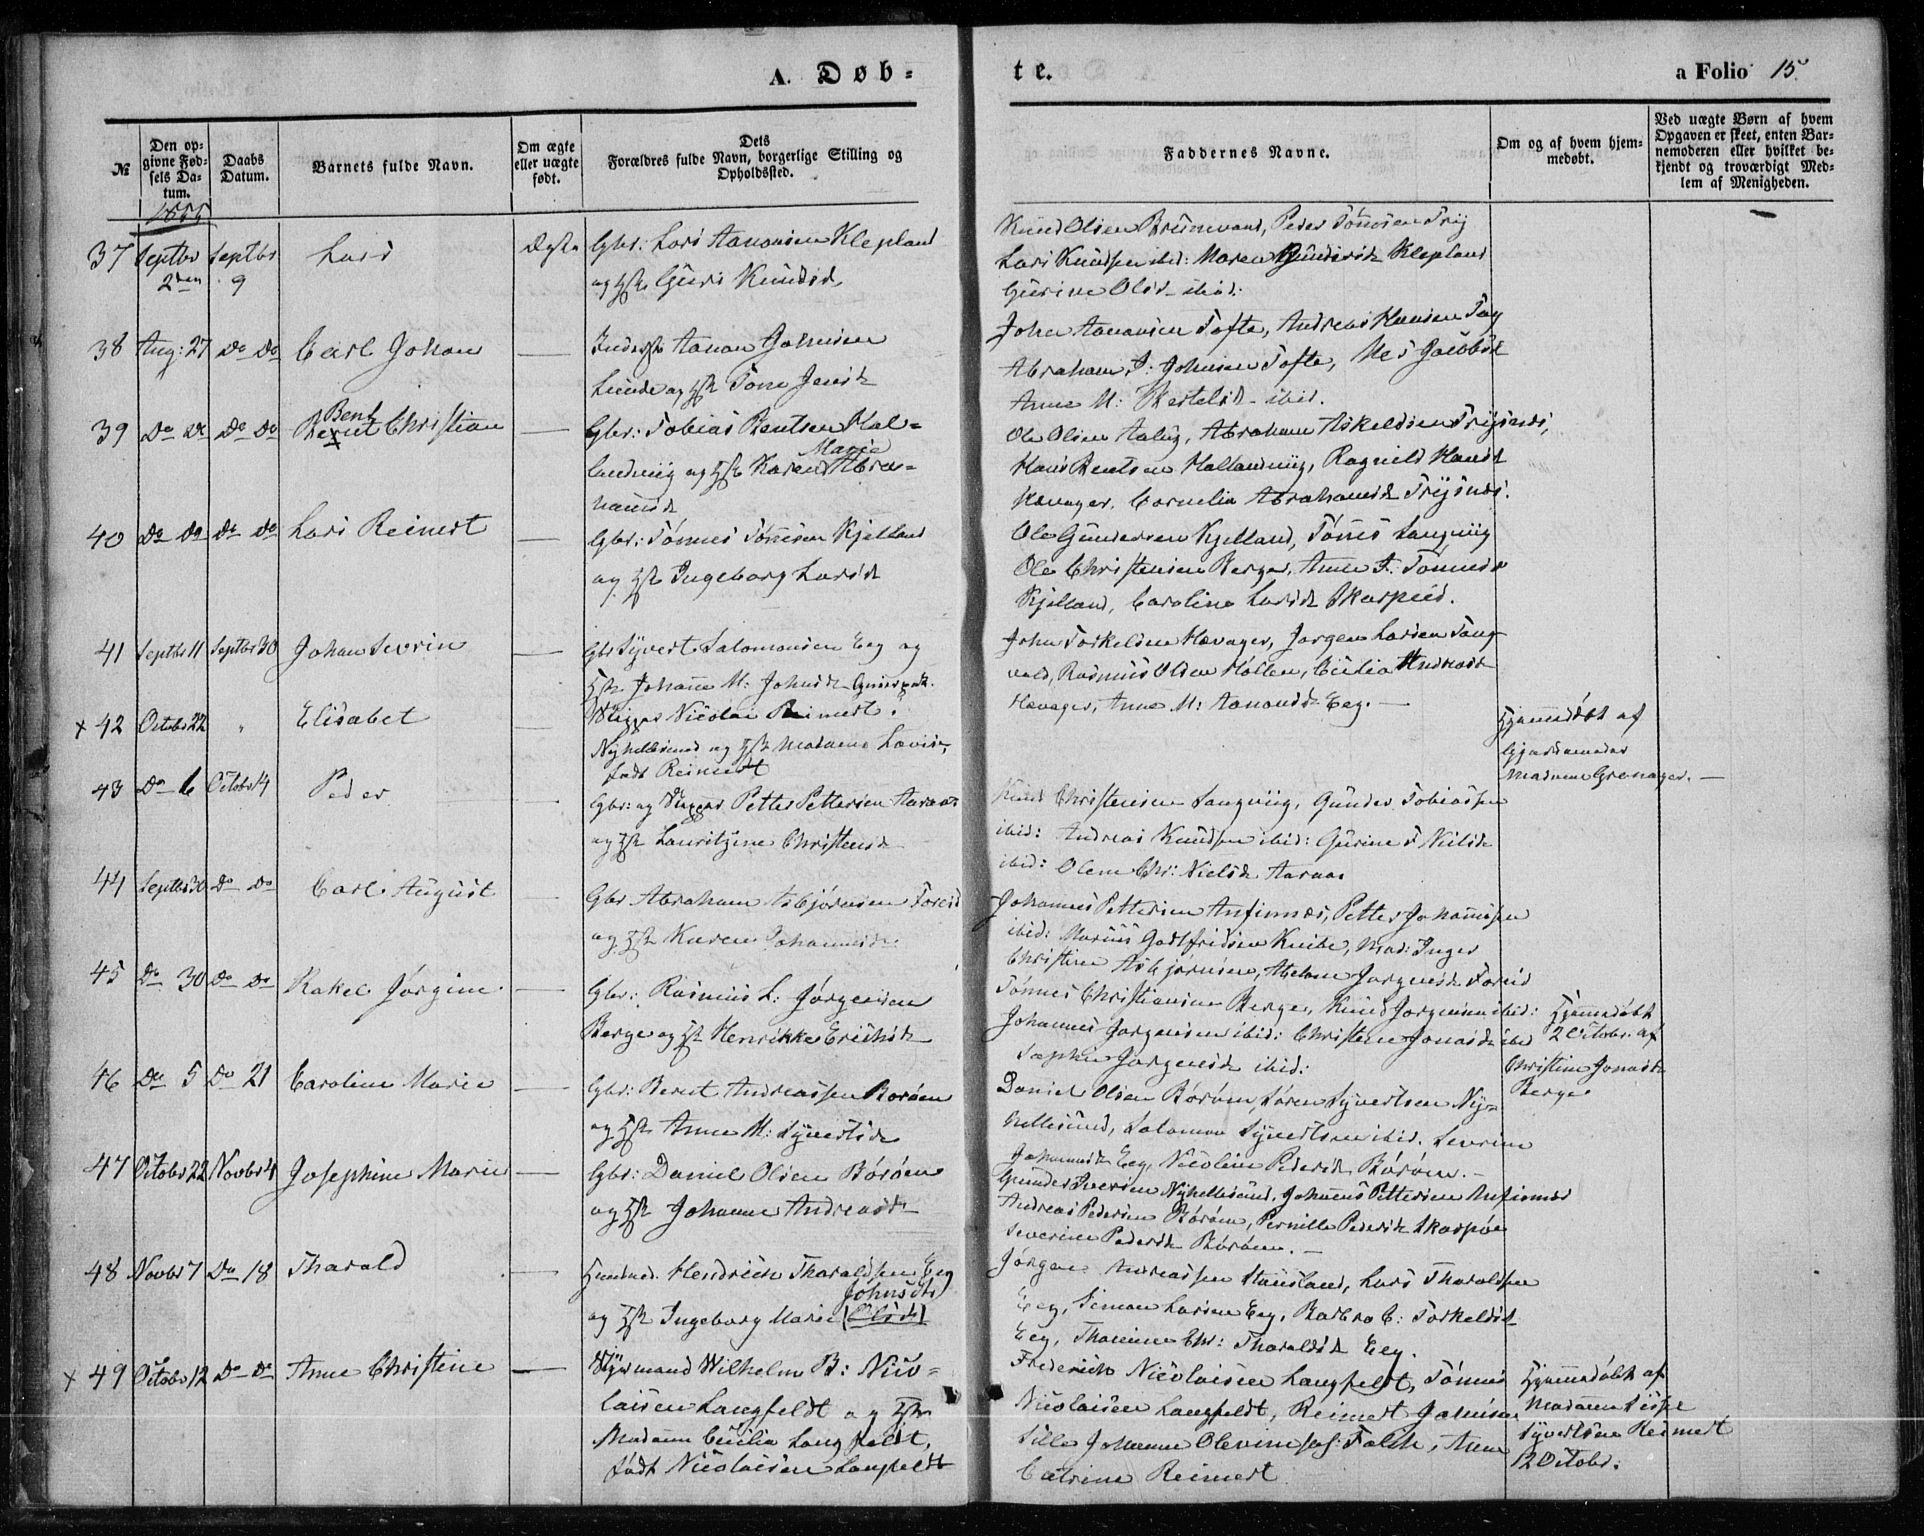 A. Døb-
te.
a Folio 15.
№
Den opgivne Fødsels Datum.
Daabs Datum.
Barnets fulde Navn.
Om ægte eller uægte født.
Dets Forældres fulde Navn, borgerlige Stilling og Opholdssted.
Faddernes Navne.
Om og af hvem hjemmedøbt.
Ved uægte Børn af hvem Opgaven er skeet, enten Barnemoderen eller hvilket bekjendt og troværdigt Medlem af Menigheden.
1855
37 Septbr 2den Septbr 9 Lars Ægte Gbr: Lars Aanonsen Klepland
og Hst Guri Knudsd
Knud Olsen Brunvand, Peder Tönnesen Try
Lars Knudsen ibid: Maren Gundersd Klepland
Gurine Olsd ibid:
38 Aug: 27 Do Do Carl Johan — Inderst Aanon Johnsen
Lunde og Hst Tone Jensd
John Aanonsen Tofte, Andreas Hansen
Abraham J: Johnsen Tofte, Jacobsd
Anne M: Kertelsd ibid.
39 Do Do Do Do Bent
Berent Christian — Gbr: Tobias Bentsen Hal-
landviig og Hst Karen Marie Abra-
hamsd
Ole Olsen Aalvig, Abraham Askeldsen Trysnæs,
Hans Bentsen Hallandviig, Ragnild Hansd
Hævager, Cornelia Abrahamsd Trysnæs.
40 Do Do Do Do Lars Reinert — Gbr: Tönnes Tönnesen Kjelland
og Hst Ingeborg Larsd
Ole Gundersen Kjelland, Tönnes Langviig
Ole Christensen Berge, Anne T. Tönnesd
Kjelland, Caroline Larsd Skarpeid.
41 Septbr 11 Septbr 30 Johan Severin — Gbr Syvert Salomonsen Eeg og
Hst Johanne M: Johnsd
John Torkeldsen Hævager, Jørgen Larsen Tang-
vald, Rasmus Olsen Høllen, Cecilia Andreasd
Hævager, Anne M: Aanonsd Eeg. —
x 42 Octobr 22 " Elisabet — Skipper Nicolai Reinert
Nyhellesund og Hst Madame Lovise,
født Reinert
Hjemmedøbt af
Gjordemoder
Madame Grønager. —
43 Do 6 Octobr 14 Peder — Gbr: og Skipper Petter Pettersen Aaraas
og Hst Lauritzine Christensd
Knud Christensen Langviig, Gunder Tobiassen
ibid: Andreas Knudsen ibid: Gurine F Nielsd
ibid: Olene Chr: Nielsd Aaraas
44 Septbr 30 Do Do Carl August — Gbr Abraham Asbjørnsen
og Hst Karen Johannesd
Johannes Pettersen Anfinnæs, Petter Johannesen
ibid: Marius Gotfridsen Knibe, Mad: Inger
Christine Asbjørnsen, Abelone Jørgensd
45 Do 30 Do Do Rakel Jørgine — Gbr: Rasmus L: Jørgensen
Berge og Hst Henrikke Erichsd
Tönnes Christiansen Berge, Knud Jørgensen ibid:
Johannes Jørgensen ibid: Christine Jonasd ibid
Sophie Jørgensd ibid:
Hjemmedøbt
2 Octobr. af
Christine Jonasd
Berge
46 Do 5 Do 21 Caroline Marie — Gbr: Berent Andreassen Borøen
og Hst Anne M: Syvertsd
Daniel Olsen Börøen, Sören Syvertsen Ny-
hellesund, Salomon Syvertsen ibid. Severine
Johannesd Eeg, Nicoline Pedersd Börøen. —
47 Octobr 22 Novbr 4 Josephine Marie — Gbr: Daniel Olsen Börøen
og Hst Johanne Andreasd
Gunder Iversen Nyhellesund, Johannes Pettersen Anfinnæs
Andreas Pedersen Börøen, Pernille Pedersd Skarpøe
Severine Pedersd Börøen. —
48 Novbr 7 Do 18 Tharald — Huusmd. Hendrich Tharaldsen Eeg
og Hst Ingeborg Marie Johnsdtr (Olsd)
Jørgen Andreassen Stausland, Lars Tharaldsen
Eeg, Simon Larsen Eeg, Barbro C: Torkelsd
Eeg, Thomine Chr: Tharaldsd Eeg.
x 49 Octobr 12 Do Do Anne Christine — Styrmand Wilhelm B: Nico-
laisen Langfeldt og Hst
Madame Cecilia Langfeldt,
født Nicolaisen Langfeldt
Frederich Nicolaisen Langfeldt, Tönnes
Nicolaisen Langfeldt, Reinert Johnsen
Sille Johanne Olevine Falch, Anne
Catrine Reinert
Hjemmedøbt af
Madame
Syvertsen Reinert
12 Octobr.